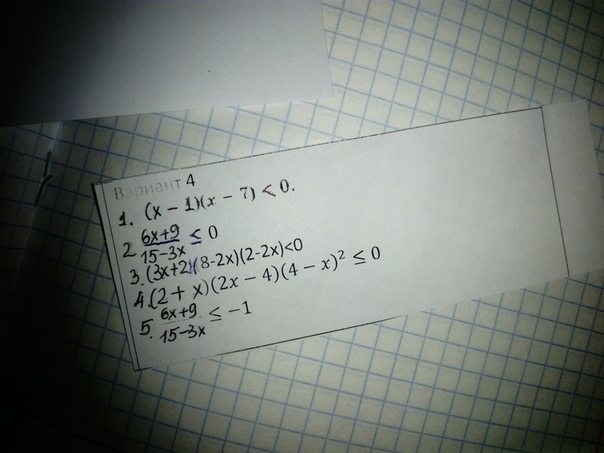 Вариант 4
1. (x − 1)(x − 7) < 0.
2 6x+9 / 15-3x ≤ 0
3. (3x+2)(8-2x)(2-2x)<0
4. (2 + x)(2x − 4)(4 − x)² ≤ 0
5. 6x+9 / 15-3x ≤ −1